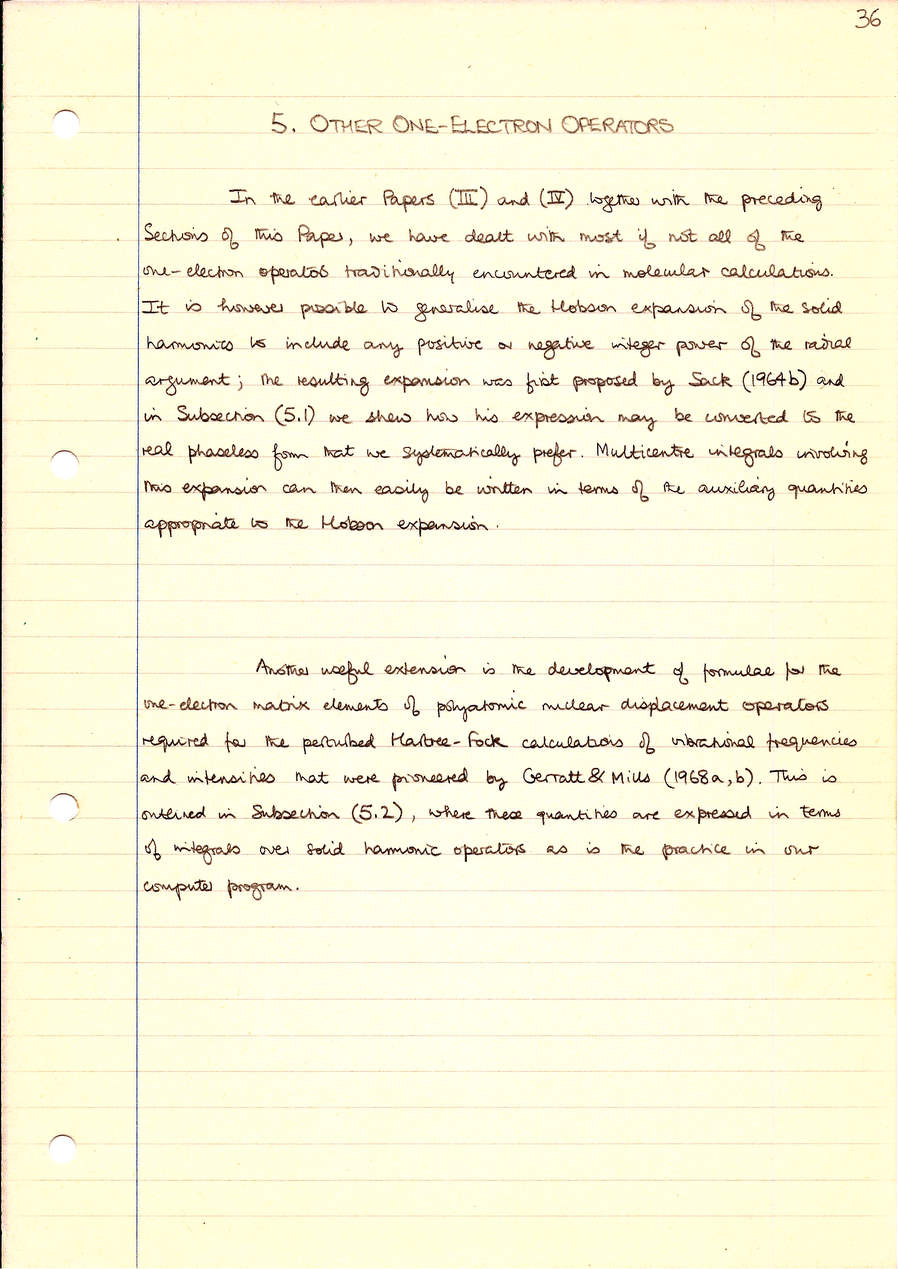 36
5. OTHER ONE-ELECTRON OPERATORS
In the earlier Papers (III) and (IV) together with the preceding
Sections of this Paper, we have dealt with most if not all of the
one-electron operators traditionally encountered in molecular calculations.
It is however possible to generalise the Hobson expansion of the solid
harmonics to include any positive or negative integer power of the radial
argument; the resulting expansion was first proposed by Sack (1964b) and
in Subsection (5.1) we shew how his expression may be converted to the
real phaseless form that we systematically prefer. Multicentre integrals involving
this expansion can then easily be written in terms of the auxiliary quantities
appropriate to the Hobson expansion.
Another useful extension is the development of formulae for the
one-electron matrix elements of polyatomic nuclear displacement operators
required for the perturbed Hartree-Fock calculations of vibrational frequencies
and intensities that were pioneered by Gerratt & Mills (1968a,b). This is
outlined in Subsection (5.2), where these quantities are expressed in terms
of integrals over solid harmonic operators as is the practice in our
computer program.